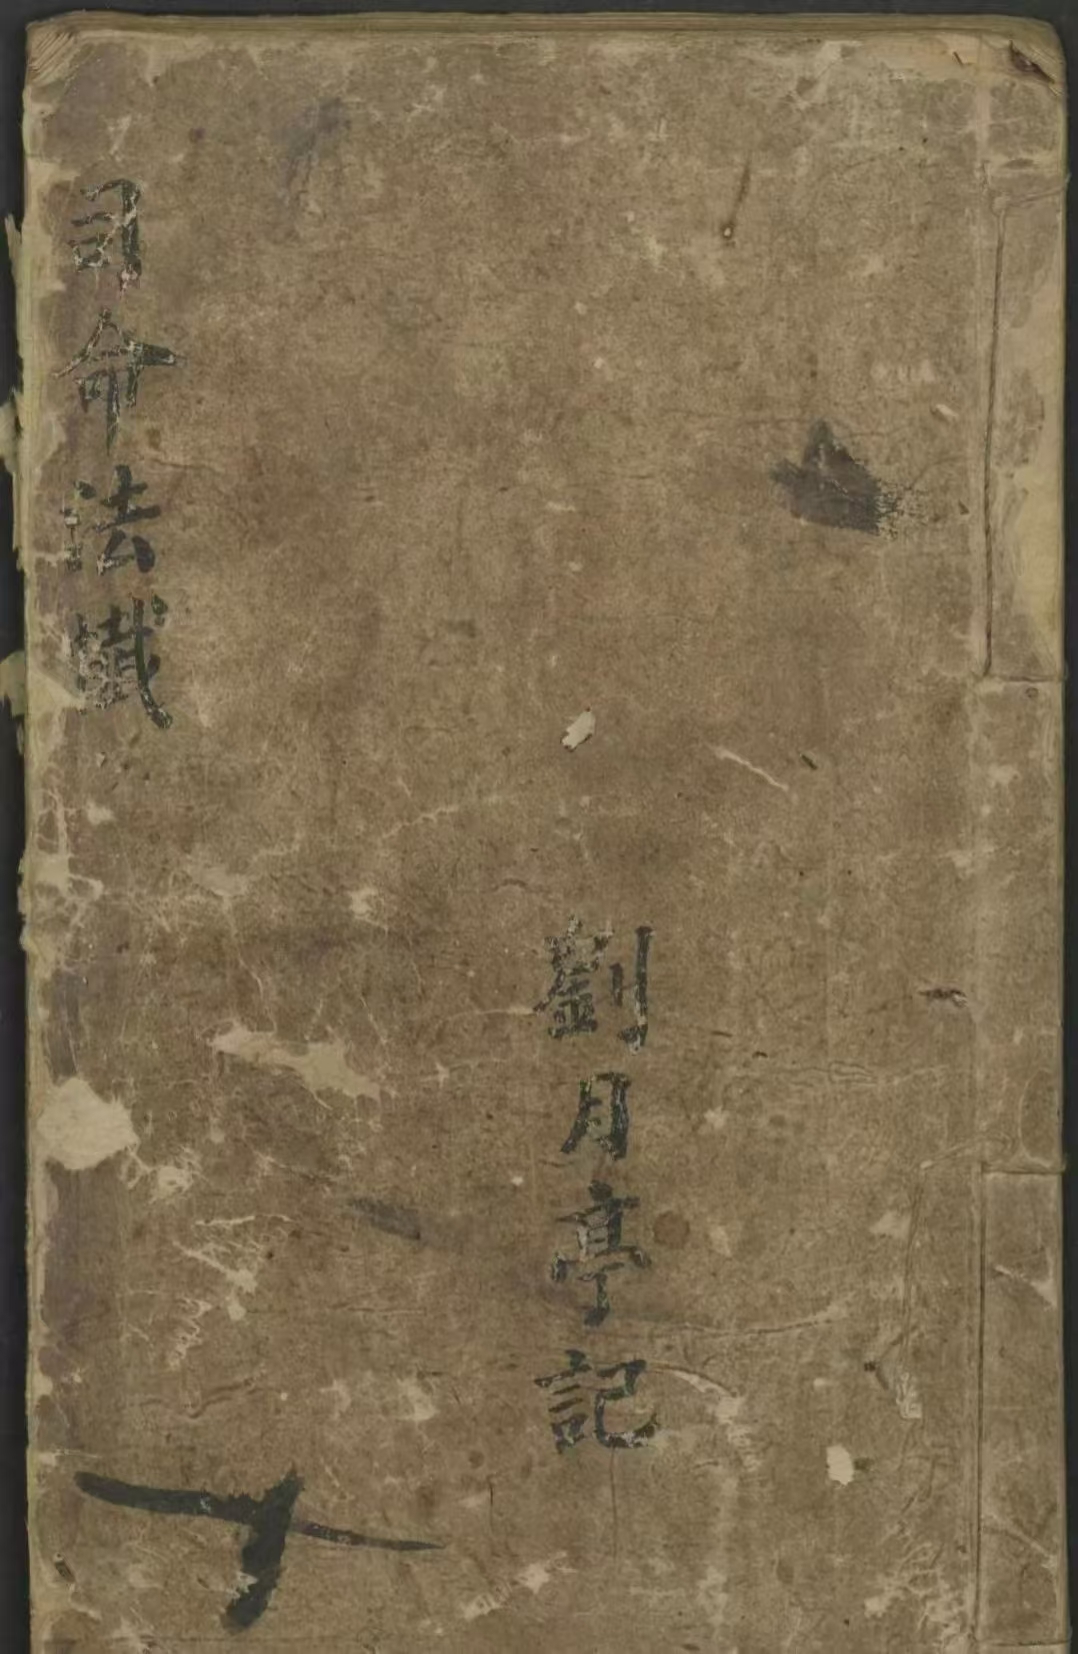 劉月亭記
司命法懺
十